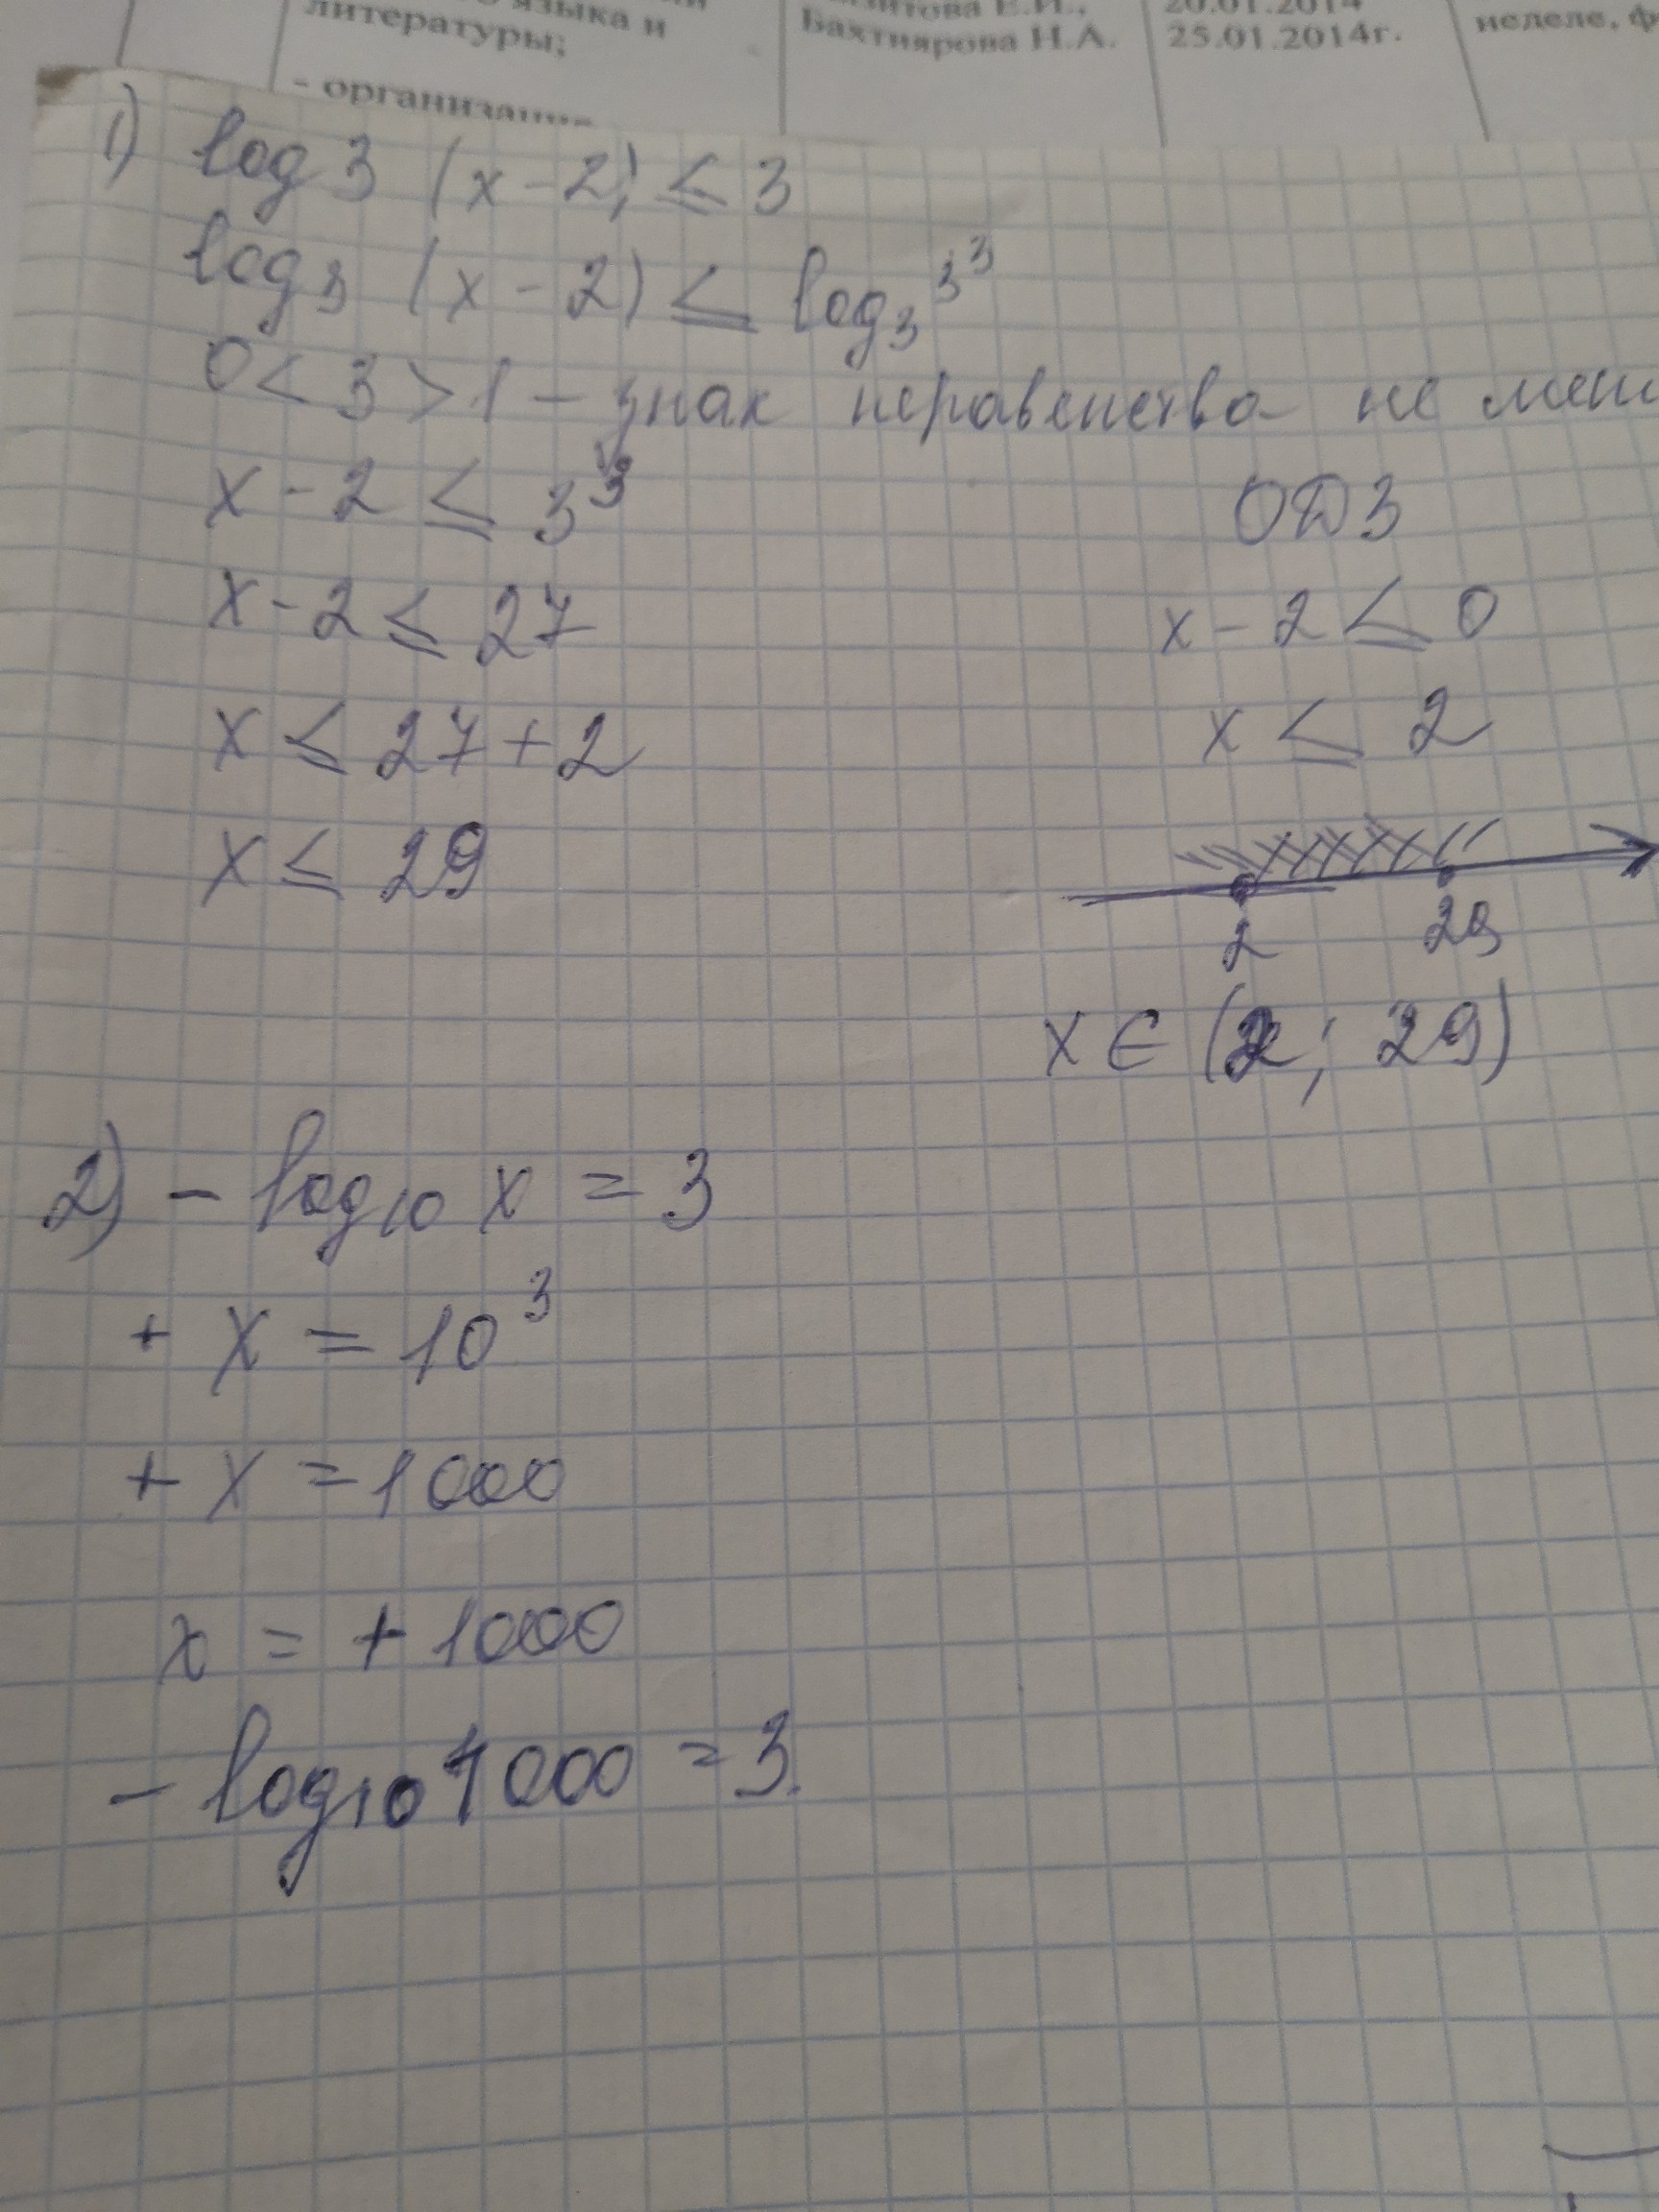 языка и
литературы;
- организация
Бахтиярова Н.А.
20.01.2014
25.01.2014г.
неделе, ф
1) log 3 (x - 2) ≤ 3
log₃ (x - 2) ≤ log₃ 3³
0 < 3 > 1 - знак неравенства не мен
x - 2 ≤ 3³
x - 2 ≤ 27
x ≤ 27 + 2
x ≤ 29
ОДЗ
x - 2 ≤ 0
x ≤ 2
2 29
x ∈ (2; 29)
2) - log₁₀ x = 3
+ x = 10³
+ x = 1000
x = + 1000
- log₁₀ 1000 = 3.